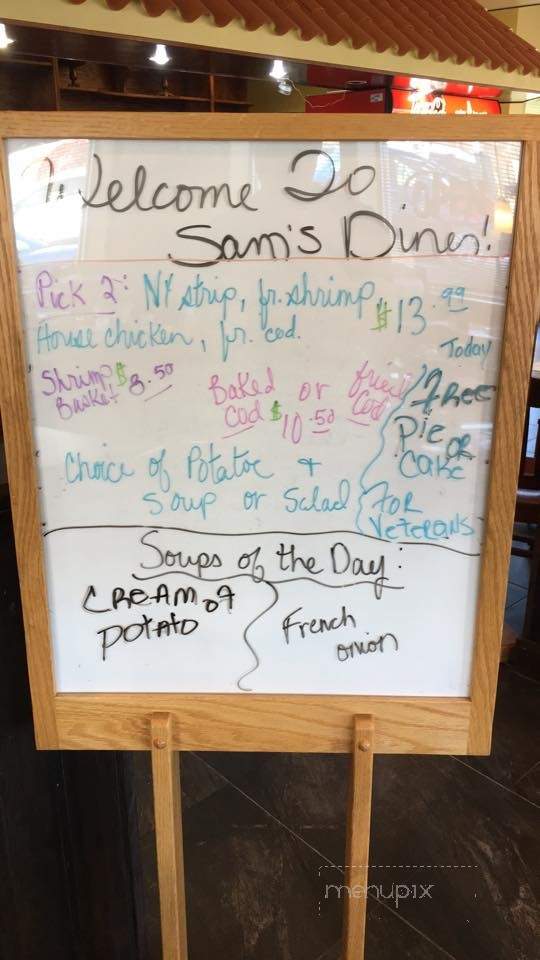 Welcome To
Sam's Diner!
Pick 2: NY strip, fr. shrimp, $13.99
House chicken, fr. cod.
Shrimp Basket $8.50
Baked or fried
Cod $10.50 Cod
Choice of Potatoe +
Soup or Salad
Today
Free
Pie or
Cake
For
Veterans
Soups of the Day:
CREAM of
POTATO
French
onion
menupix